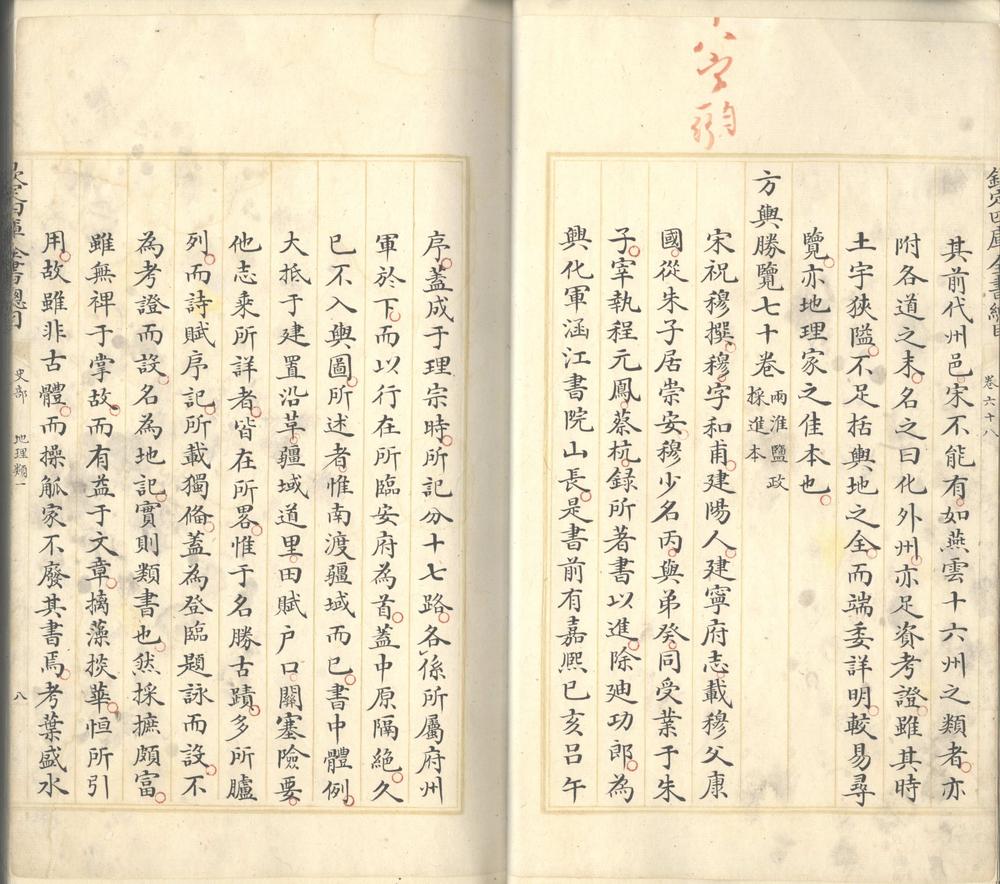 欽定四庫全書總目
卷六十八
其前代州邑宋不能有如燕雲十六州之類者亦
附各道之末名之曰化外州亦足資考證雖其時
土宇狹隘不足括輿地之全而端委詳明較易尋
覽亦地理家之佳本也
方輿勝覽七十卷
兩淮鹽政
採進本
宋祝穆撰穆字和甫建陽人建寧府志載穆父康
國從朱子居崇安穆少名丙與弟癸同受業于朱
子宰執程元鳳蔡杭録所著書以進除廸功郎為
興化軍涵江書院山長是書前有嘉熙已亥呂午
序蓋成于理宗時所記分十七路各係所屬府州
軍於下而以行在所臨安府為首蓋中原隔絶久
已不入輿圖所述者惟南渡疆域而已書中體例
大抵于建置沿革疆域道里田賦户口關塞險要
他志乘所詳者皆在所畧惟于名勝古蹟多所臚
列而詩賦序記所載獨偹蓋為登臨題詠而設不
為考證而設名為地記實則類書也然採摭頗富
雖無裨于掌故而有益于文章摛藻掞華恒所引
用故雖非古體而操觚家不廢其書焉考葉盛水
欽定四庫全書總目
史部
地理類一
八